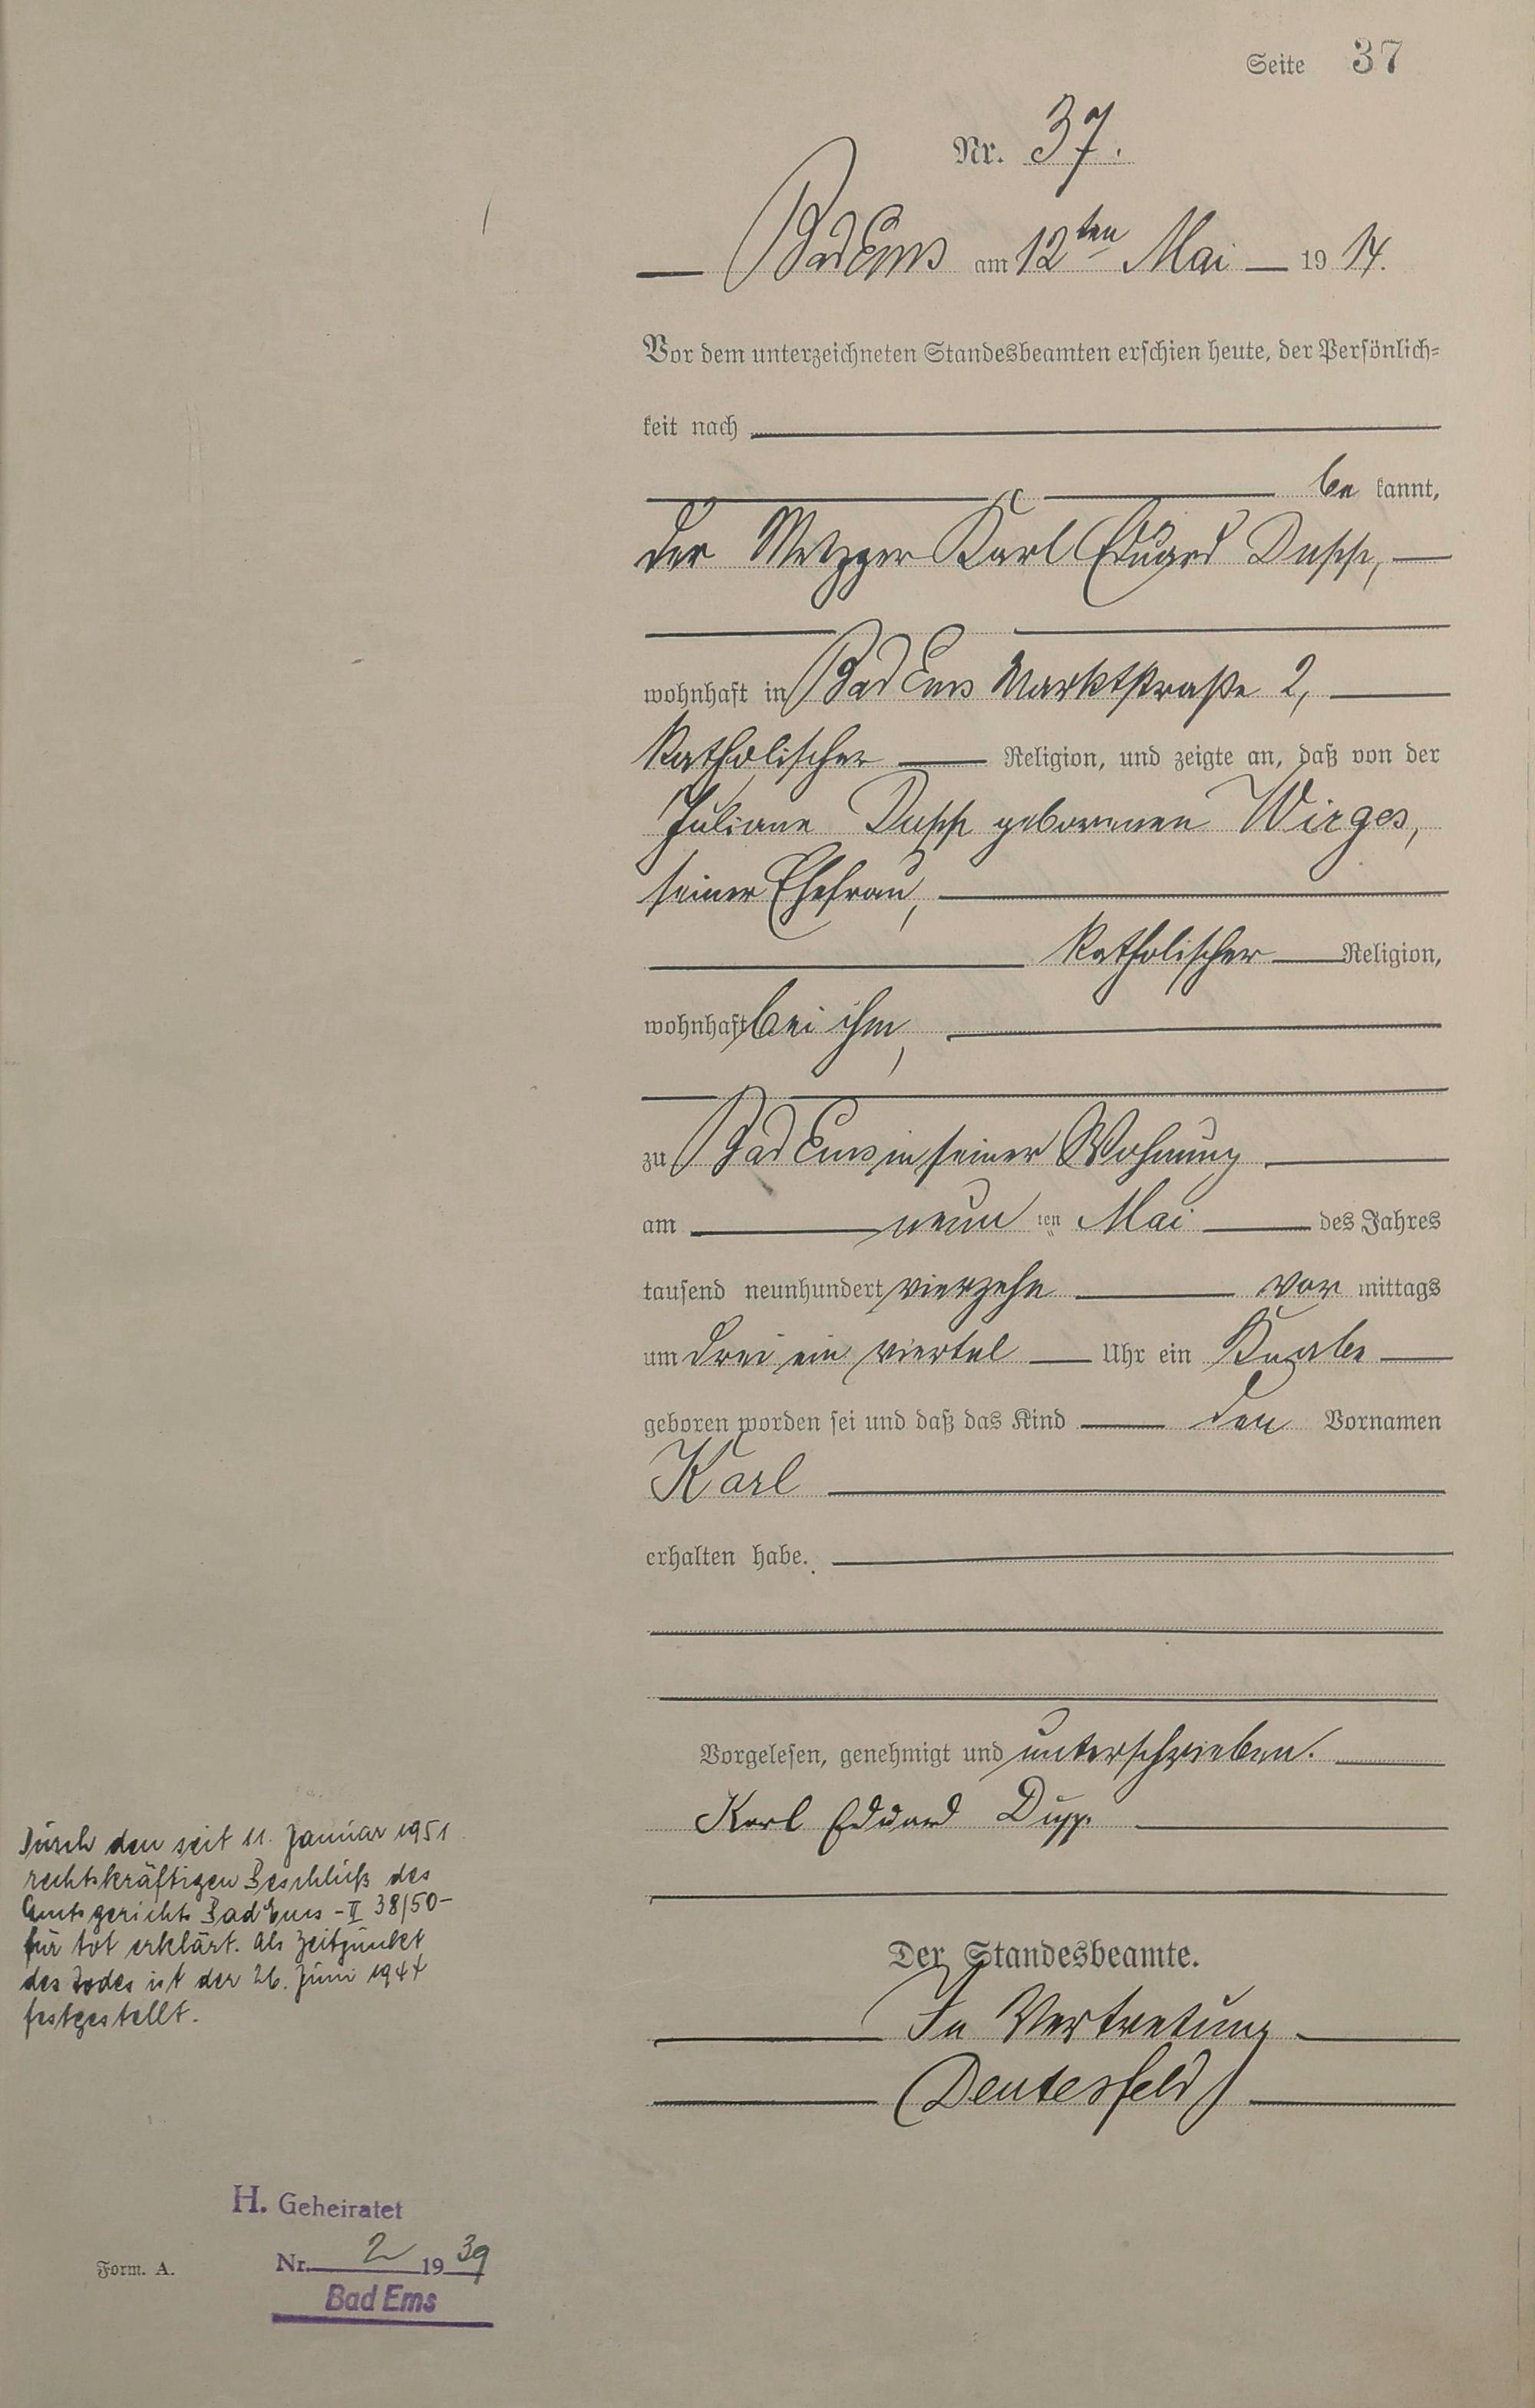 Seite 37
Nr. 37.
Bad Ems am 12ten Mai 19 14.
Vor dem unterzeichneten Standesbeamten erschien heute, der Persönlich-
keit nach
be kannt,
der Metzger Karl Eduard Dupp,
wohnhaft in Bad Ems Marktstraße 2,
katholischer Religion, und zeigte an, daß von der
Juliane Dupp geborenen Wirges,
seiner Ehefrau,
katholischer Religion,
wohnhaft bei ihm,
zu Bad Ems in seiner Wohnung
am neun ten Mai des Jahres
tausend neunhundert vierzehn vor mittags
um drei ein viertel Uhr ein Knabe
geboren worden sei und daß das Kind den Vornamen
Karl
erhalten habe.
Vorgelesen, genehmigt und unterschrieben.
Karl Eduard Dupp.
Der Standesbeamte.
In Vertretung
(Deutesfeld)
Durch den seit 11. Januar 1951
rechtskräftigen Beschluß des
Amtsgerichts Bad Ems - II 38/50 -
für tot erklärt. Als Zeitpunkt
des Todes ist der 26. Juni 1944
festgestellt.
H. Geheiratet
Nr. 2 19 39
Bad Ems
Form. A.